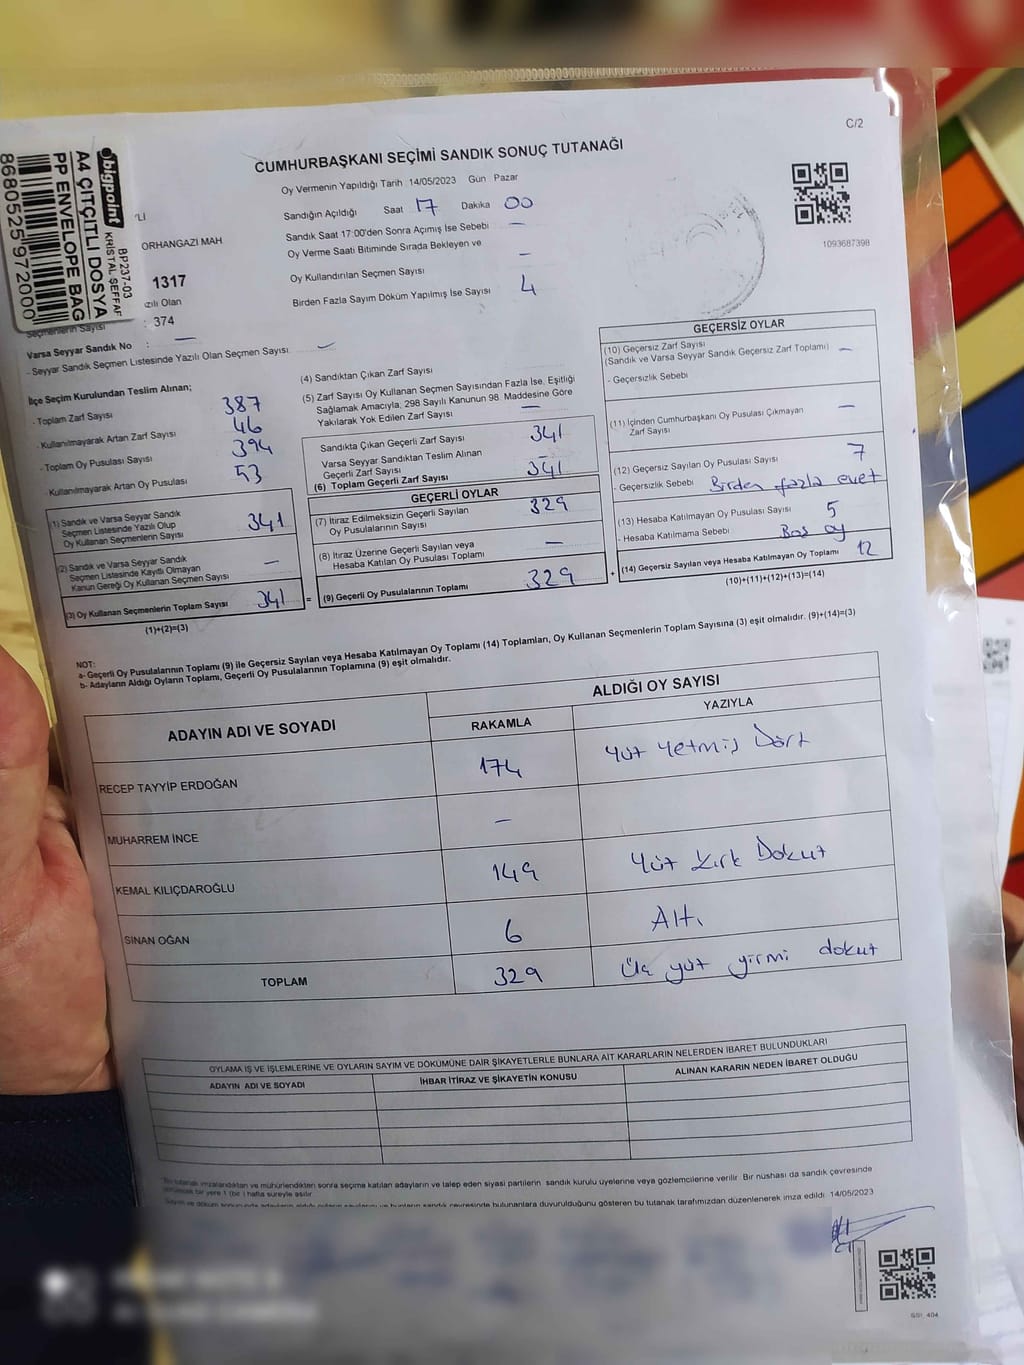 C/2
CUMHURBAŞKANI SEÇİMİ SANDIK SONUÇ TUTANAĞI
Oy Vermenin Yapıldığı Tarih 14/05/2023 Gün Pazar
Sandığın Açıldığı Saat 17 Dakika 00
Sandık Saat 17:00'den Sonra Açımış İse Sebebi -
Oy Verme Saati Bitiminde Sırada Bekleyen ve
Oy Kullandırılan Seçmen Sayısı -
Birden Fazla Sayım Döküm Yapılmış İse Sayısı 4
1093687398
bigpoint
BP237-03
KRİSTAL ŞEFFAF
A4 ÇITÇITLI DOSYA
PP ENVELOPE BAG
8680525972000
ORHANGAZI MAH
1317
zılı Olan
Seçmenlerin Sayısı : 374
Varsa Seyyar Sandık No : -
- Seyyar Sandık Seçmen Listesinde Yazılı Olan Seçmen Sayısı: -
İlçe Seçim Kurulundan Teslim Alınan;
- Toplam Zarf Sayısı 387
- Kullanılmayarak Artan Zarf Sayısı 46
- Toplam Oy Pusulası Sayısı 394
- Kullanılmayarak Artan Oy Pusulası 53
(1) Sandık ve Varsa Seyyar Sandık
Seçmen Listesinde Yazılı Olup
Oy Kullanan Seçmenlerin Sayısı 341
(2) Sandık ve Varsa Seyyar Sandık
Seçmen Listesinde Kayıtlı Olmayan
Kanun Gereği Oy Kullanan Seçmen Sayısı -
(3) Oy Kullanan Seçmenlerin Toplam Sayısı 341 =
(1)+(2)=(3)
(4) Sandıktan Çıkan Zarf Sayısı
(5) Zarf Sayısı Oy Kullanan Seçmen Sayısından Fazla İse, Eşitliği
Sağlamak Amacıyla; 298 Sayılı Kanunun 98. Maddesine Göre
Yakılarak Yok Edilen Zarf Sayısı -
Sandıkta Çıkan Geçerli Zarf Sayısı 341
Varsa Seyyar Sandıktan Teslim Alınan
Geçerli Zarf Sayısı -
(6) Toplam Geçerli Zarf Sayısı 341
GEÇERLİ OYLAR
(7) İtiraz Edilmeksizin Geçerli Sayılan
Oy Pusulalarının Sayısı 329
(8) İtiraz Üzerine Geçerli Sayılan veya
Hesaba Katılan Oy Pusulası Toplamı -
(9) Geçerli Oy Pusulalarının Toplamı 329 +
GEÇERSİZ OYLAR
(10) Geçersiz Zarf Sayısı
(Sandık ve Varsa Seyyar Sandık Geçersiz Zarf Toplamı) -
- Geçersizlik Sebebi
(11) İçinden Cumhurbaşkanı Oy Pusulası Çıkmayan
Zarf Sayısı -
(12) Geçersiz Sayılan Oy Pusulası Sayısı 7
- Geçersizlik Sebebi Birden fazla evet
(13) Hesaba Katılmayan Oy Pusulası Sayısı 5
- Hesaba Katılmama Sebebi Boş oy
(14) Geçersiz Sayılan veya Hesaba Katılmayan Oy Toplamı 12
(10)+(11)+(12)+(13)=(14)
NOT:
a- Geçerli Oy Pusulalarının Toplamı (9) ile Geçersiz Sayılan veya Hesaba Katılmayan Oy Toplamı (14) Toplamları, Oy Kullanan Seçmenlerin Toplam Sayısına (3) eşit olmalıdır. (9)+(14)=(3)
b- Adayların Aldığı Oyların Toplamı, Geçerli Oy Pusulalarının Toplamına (9) eşit olmalıdır.
ADAYIN ADI VE SOYADI
ALDIĞI OY SAYISI
RAKAMLA YAZIYLA
RECEP TAYYİP ERDOĞAN 174 Yüz Yetmiş Dört
MUHARREM İNCE -
KEMAL KILIÇDAROĞLU 149 Yüz Kırk Dokuz
SİNAN OĞAN 6 Altı
TOPLAM 329 Üç yüz yirmi dokuz
OYLAMA İŞ VE İŞLEMLERİNE VE OYLARIN SAYIM VE DÖKÜMÜNE DAİR ŞİKAYETLERLE BUNLARA AİT KARARLARIN NELERDEN İBARET BULUNDUKLARI
ADAYIN ADI VE SOYADI İHBAR İTİRAZ VE ŞİKAYETİN KONUSU ALINAN KARARIN NEDEN İBARET OLDUĞU
Bu tutanak imzalandıktan ve mühürlendikten sonra seçime katılan adayların ve talep eden siyasi partilerin sandık kurulu üyelerine veya gözlemcilerine verilir. Bir nüshası da sandık çevresinde
görülecek bir yere 1 (bir) hafta süreyle asılır.
bulunanlara duyurulduğunu gösteren bu tutanak tarafımızdan düzenlenerek imza edildi. 14/05/2023
GSI_404